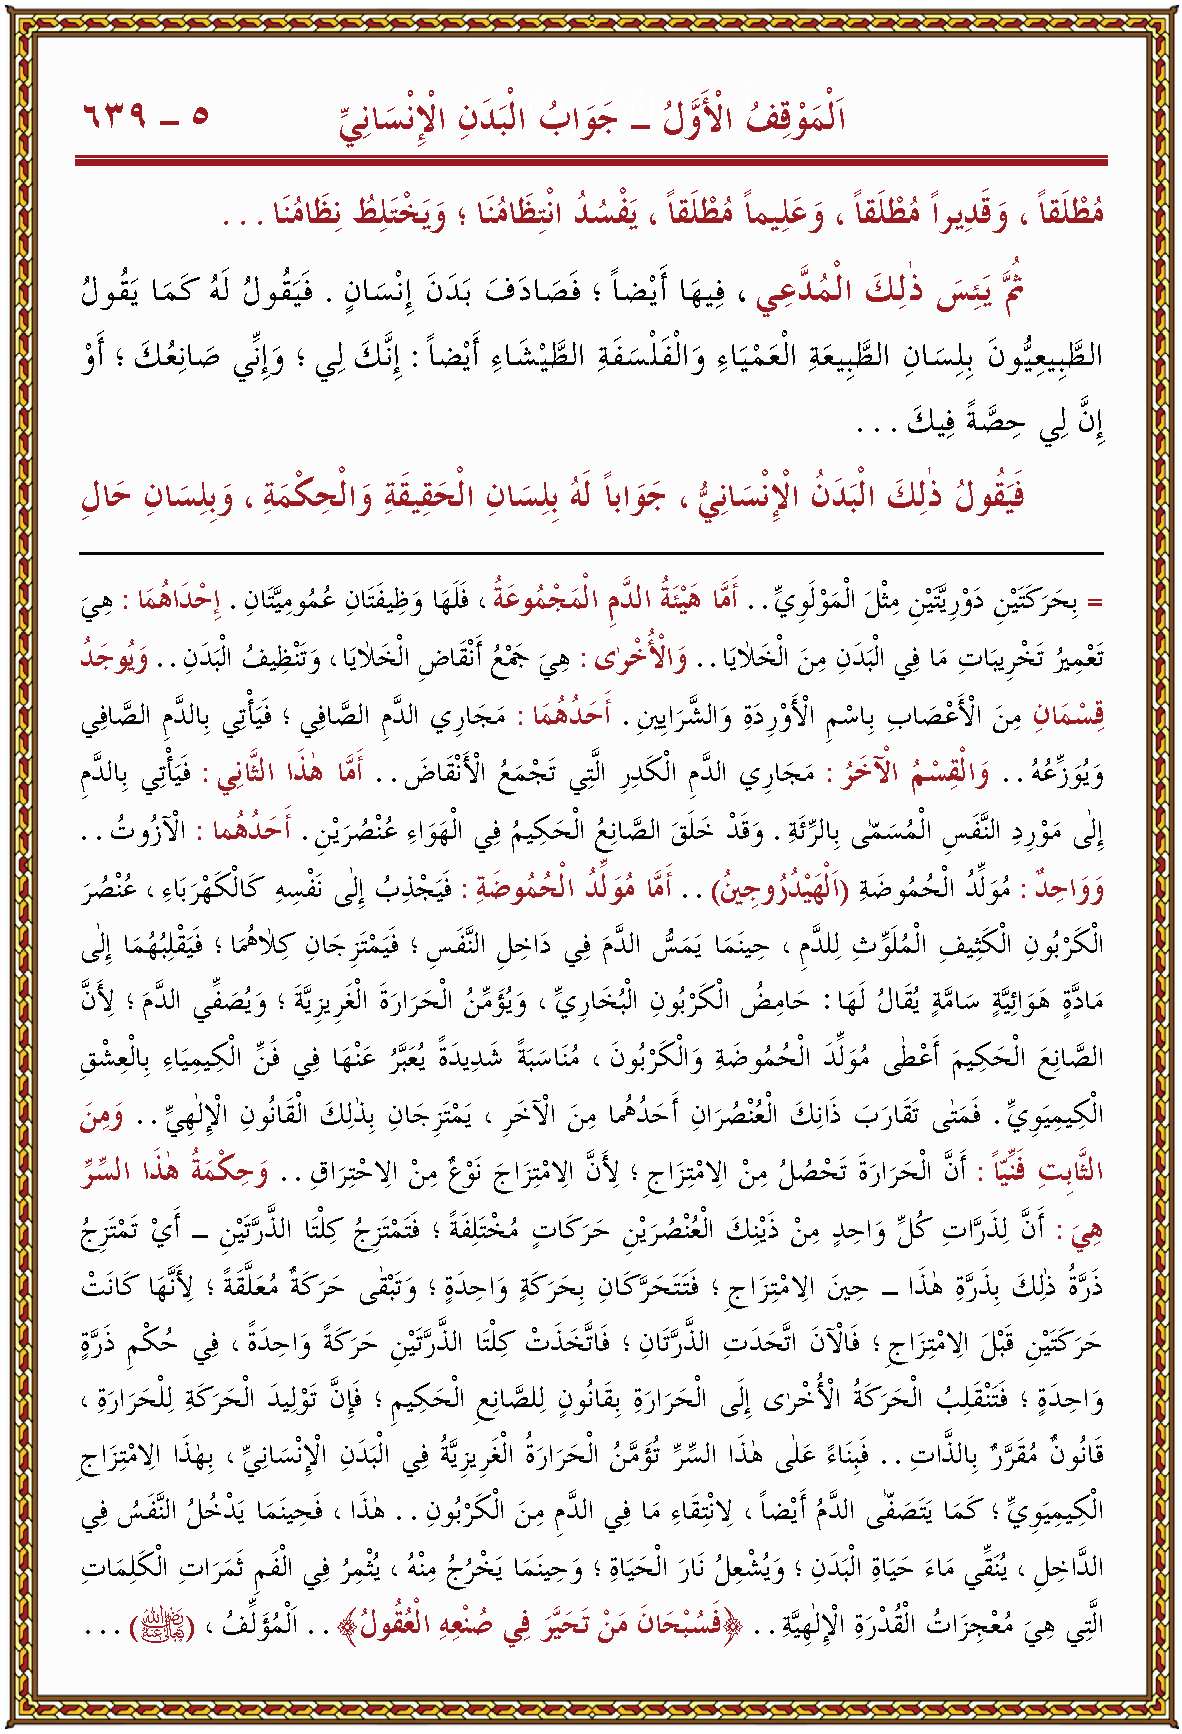 اَلْمَوْقِفُ الْأَوَّلُ ـ جَوَابُ الْبَدَنِ الْإِنْسَانِيِّ
٥ ـ ٦٣٩
مُطْلَقاً ، وَقَدِيراً مُطْلَقاً ، وَعَلِيماً مُطْلَقاً ، يَفْسُدُ انْتِظَامُنَا ؛ وَيَخْتَلِطُ نِظَامُنَا . . .
ثُمَّ يَئِسَ ذٰلِكَ الْمُدَّعِي ، فِيهَا أَيْضاً ؛ فَصَادَفَ بَدَنَ إِنْسَانٍ . فَيَقُولُ لَهُ كَمَا يَقُولُ
الطَّبِيعِيُّونَ بِلِسَانِ الطَّبِيعَةِ الْعَمْيَاءِ وَالْفَلْسَفَةِ الطَّيْشَاءِ أَيْضاً : إِنَّكَ لِي ؛ وَإِنِّي صَانِعُكَ ؛ أَوْ
إِنَّ لِي حِصَّةً فِيكَ . . .
فَيَقُولُ ذٰلِكَ الْبَدَنُ الْإِنْسَانِيُّ ، جَوَاباً لَهُ بِلِسَانِ الْحَقِيقَةِ وَالْحِكْمَةِ ، وَبِلِسَانِ حَالِ
= بِحَرَكَتَيْنِ دَوْرِيَّتَيْنِ مِثْلَ الْمَوْلَوِيِّ . . أَمَّا هَيْئَةُ الدَّمِ الْمَجْمُوعَةُ ، فَلَهَا وَظِيفَتَانِ عُمُومِيَّتَانِ . إِحْدَاهُمَا : هِيَ
تَعْمِيرُ تَخْرِيبَاتِ مَا فِي الْبَدَنِ مِنَ الْخَلَايَا . . وَالْأُخْرٰى : هِيَ جَمْعُ أَنْقَاضِ الْخَلَايَا ، وَتَنْظِيفُ الْبَدَنِ . . وَيُوجَدُ
قِسْمَانِ مِنَ الْأَعْصَابِ بِاسْمِ الْأَوْرِدَةِ وَالشَّرَايِينِ . أَحَدُهُمَا : مَجَارِي الدَّمِ الصَّافِي ؛ فَيَأْتِي بِالدَّمِ الصَّافِي
وَيُوَزِّعُهُ . . وَالْقِسْمُ الْآخَرُ : مَجَارِي الدَّمِ الْكَدِرِ الَّتِي تَجْمَعُ الْأَنْقَاضَ . . أَمَّا هٰذَا الثَّانِي : فَيَأْتِي بِالدَّمِ
إِلٰى مَوْرِدِ النَّفَسِ الْمُسَمّٰى بِالرِّئَةِ . وَقَدْ خَلَقَ الصَّانِعُ الْحَكِيمُ فِي الْهَوَاءِ عُنْصُرَيْنِ . أَحَدُهُمَا : الْآزُوتُ . .
وَوَاحِدٌ : مُوَلِّدُ الْحُمُوضَةِ (اَلْهَيْدُرُوجِينُ) . . أَمَّا مُوَلِّدُ الْحُمُوضَةِ : فَيَجْذِبُ إِلٰى نَفْسِهِ كَالْكَهْرَبَاءِ ، عُنْصُرَ
الْكَرْبُونِ الْكَثِيفِ الْمُلَوِّثِ لِلدَّمِ ، حِينَمَا يَمَسُّ الدَّمَ فِي دَاخِلِ النَّفَسِ ؛ فَيَمْتَزِجَانِ كِلَاهُمَا ؛ فَيَقْلِبُهُمَا إِلٰى
مَادَّةٍ هَوَائِيَّةٍ سَامَّةٍ يُقَالُ لَهَا : حَامِضُ الْكَرْبُونِ الْبُخَارِيِّ ، وَيُؤَمِّنُ الْحَرَارَةَ الْغَرِيزِيَّةَ ؛ وَيُصَفِّي الدَّمَ ؛ لِأَنَّ
الصَّانِعَ الْحَكِيمَ أَعْطٰى مُوَلِّدَ الْحُمُوضَةِ وَالْكَرْبُونَ ، مُنَاسَبَةً شَدِيدَةً يُعَبَّرُ عَنْهَا فِي فَنِّ الْكِيمِيَاءِ بِالْعِشْقِ
الْكِيمِيَوِيِّ . فَمَتٰى تَقَارَبَ ذَانِكَ الْعُنْصُرَانِ أَحَدُهُمَا مِنَ الْآخَرِ ، يَمْتَزِجَانِ بِذٰلِكَ الْقَانُونِ الْإِلٰهِيِّ . . وَمِنَ
الثَّابِتِ فَنِّيّاً : أَنَّ الْحَرَارَةَ تَحْصُلُ مِنْ الِامْتِزَاجِ ؛ لِأَنَّ الِامْتِزَاجَ نَوْعٌ مِنْ الِاحْتِرَاقِ . . وَحِكْمَةُ هٰذَا السِّرِّ
هِيَ : أَنَّ لِذَرَّاتِ كُلِّ وَاحِدٍ مِنْ ذَيْنِكَ الْعُنْصُرَيْنِ حَرَكَاتٍ مُخْتَلِفَةً ؛ فَتَمْتَزِجُ كِلْتَا الذَّرَّتَيْنِ ـ أَيْ تَمْتَزِجُ
ذَرَّةُ ذٰلِكَ بِذَرَّةِ هٰذَا ـ حِينَ الِامْتِزَاجِ ؛ فَتَتَحَرَّكَانِ بِحَرَكَةٍ وَاحِدَةٍ ؛ وَتَبْقٰى حَرَكَةٌ مُعَلَّقَةً ؛ لِأَنَّهَا كَانَتْ
حَرَكَتَيْنِ قَبْلَ الِامْتِزَاجِ ؛ فَالْآنَ اتَّحَدَتِ الذَّرَّتَانِ ؛ فَاتَّخَذَتْ كِلْتَا الذَّرَّتَيْنِ حَرَكَةً وَاحِدَةً ، فِي حُكْمِ ذَرَّةٍ
وَاحِدَةٍ ؛ فَتَنْقَلِبُ الْحَرَكَةُ الْأُخْرٰى إِلَى الْحَرَارَةِ بِقَانُونٍ لِلصَّانِعِ الْحَكِيمِ ؛ فَإِنَّ تَوْلِيدَ الْحَرَكَةِ لِلْحَرَارَةِ ،
قَانُونٌ مُقَرَّرٌ بِالذَّاتِ . . فَبِنَاءً عَلٰى هٰذَا السِّرِّ تُؤَمَّنُ الْحَرَارَةُ الْغَرِيزِيَّةُ فِي الْبَدَنِ الْإِنْسَانِيِّ ، بِهٰذَا الِامْتِزَاجِ
الْكِيمِيَوِيِّ ؛ كَمَا يَتَصَفّٰى الدَّمُ أَيْضاً ، لِانْتِقَاءِ مَا فِي الدَّمِ مِنَ الْكَرْبُونِ . . هٰذَا ، فَحِينَمَا يَدْخُلُ النَّفَسُ فِي
الدَّاخِلِ ، يُنَقِّي مَاءَ حَيَاةِ الْبَدَنِ ؛ وَيُشْعِلُ نَارَ الْحَيَاةِ ؛ وَحِينَمَا يَخْرُجُ مِنْهُ ، يُثْمِرُ فِي الْفَمِ ثَمَرَاتِ الْكَلِمَاتِ
الَّتِي هِيَ مُعْجِزَاتُ الْقُدْرَةِ الْإِلٰهِيَّةِ . . ﴿فَسُبْحَانَ مَنْ تَحَيَّرَ فِي صُنْعِهِ الْعُقُولُ﴾ . . اَلْمُؤَلِّفُ ، (رضي الله عنه) . . .